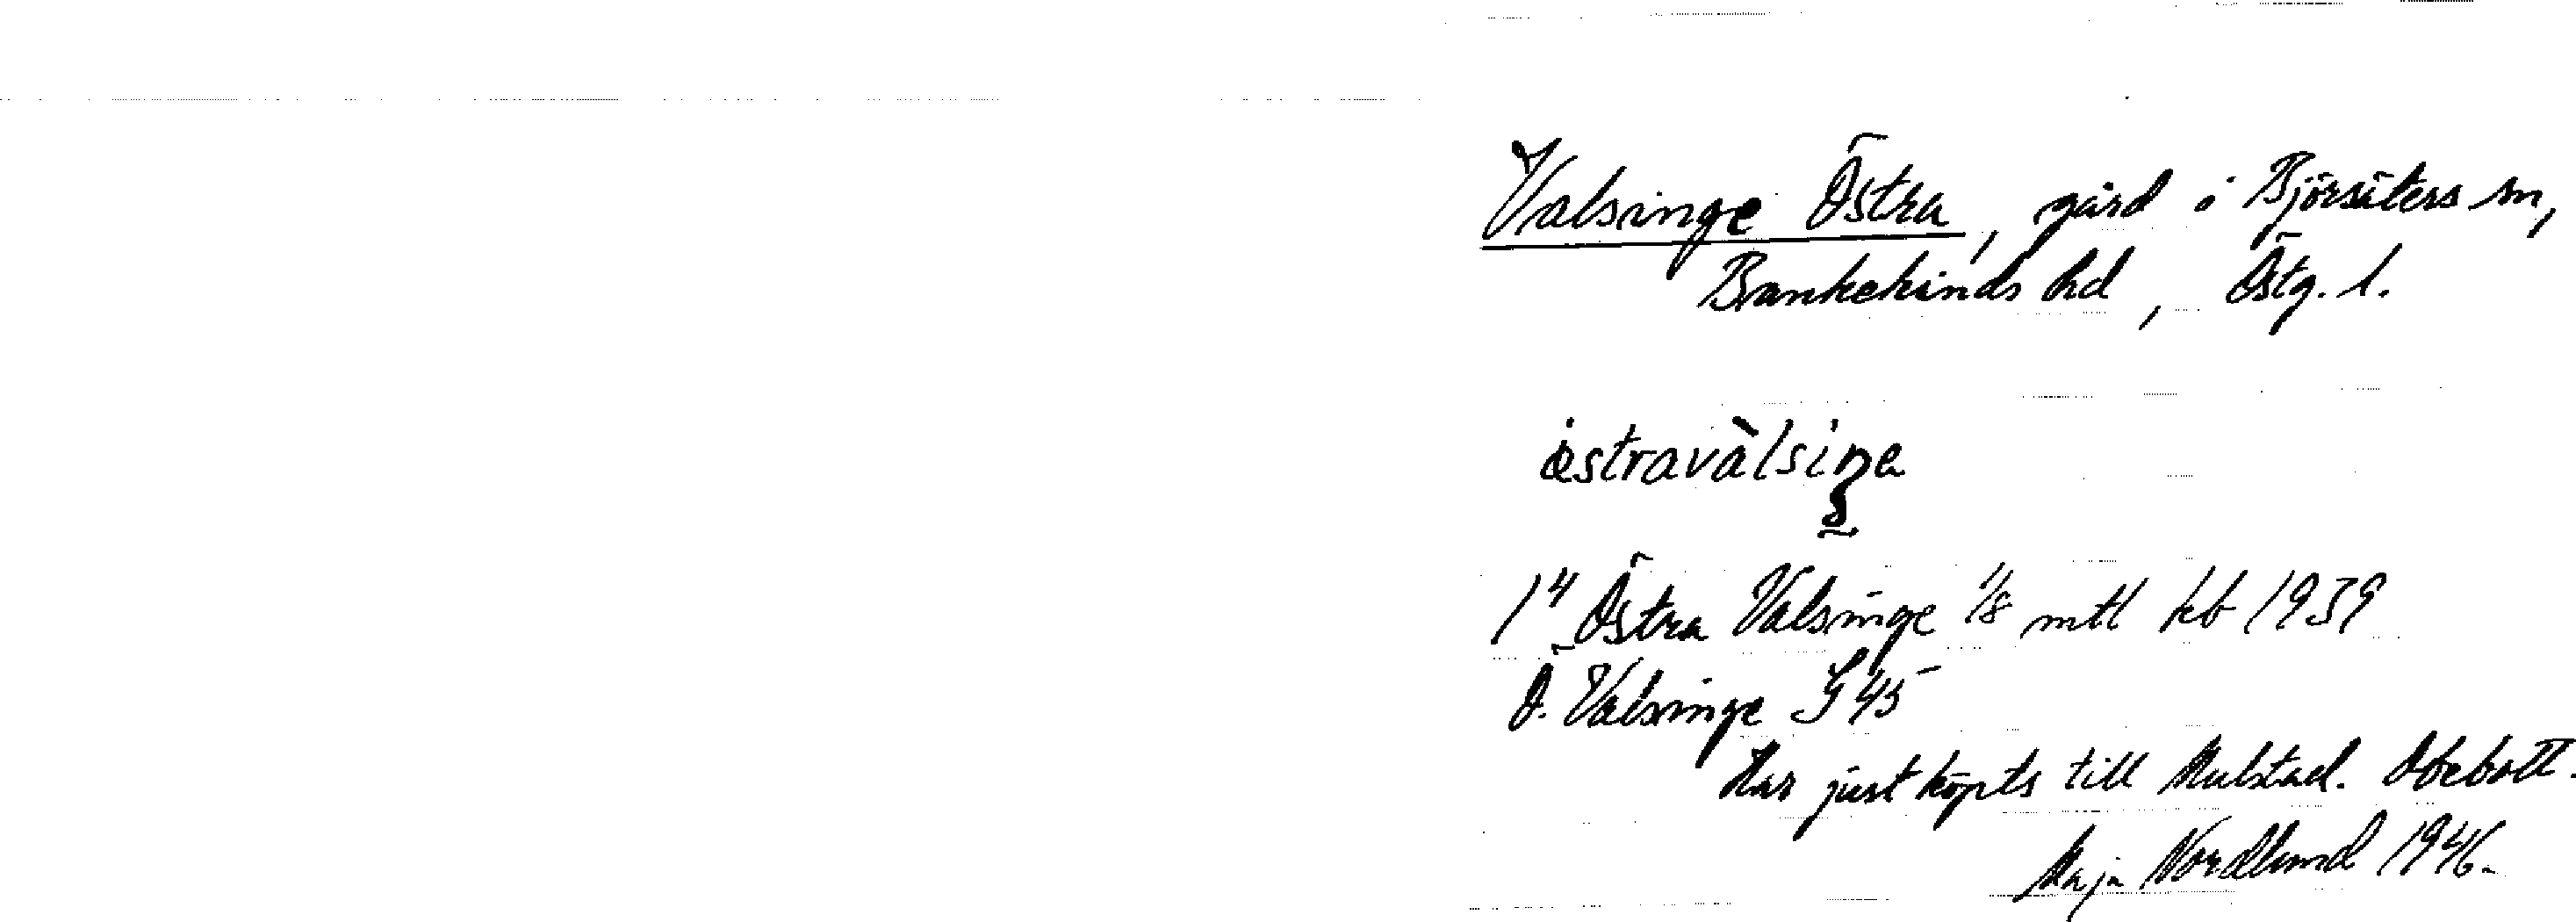 Valsinge Östra, gård i Björsäters sn,
Bankekinds hd, Östg. l.
östravàlsiŋe
1⁴ Östra Valsinge 1/8 mtl kb 1939
Ö. Valsinge G 45
Har just köpts till Mulstad. Obebott.
Maja Nordlund 1946.